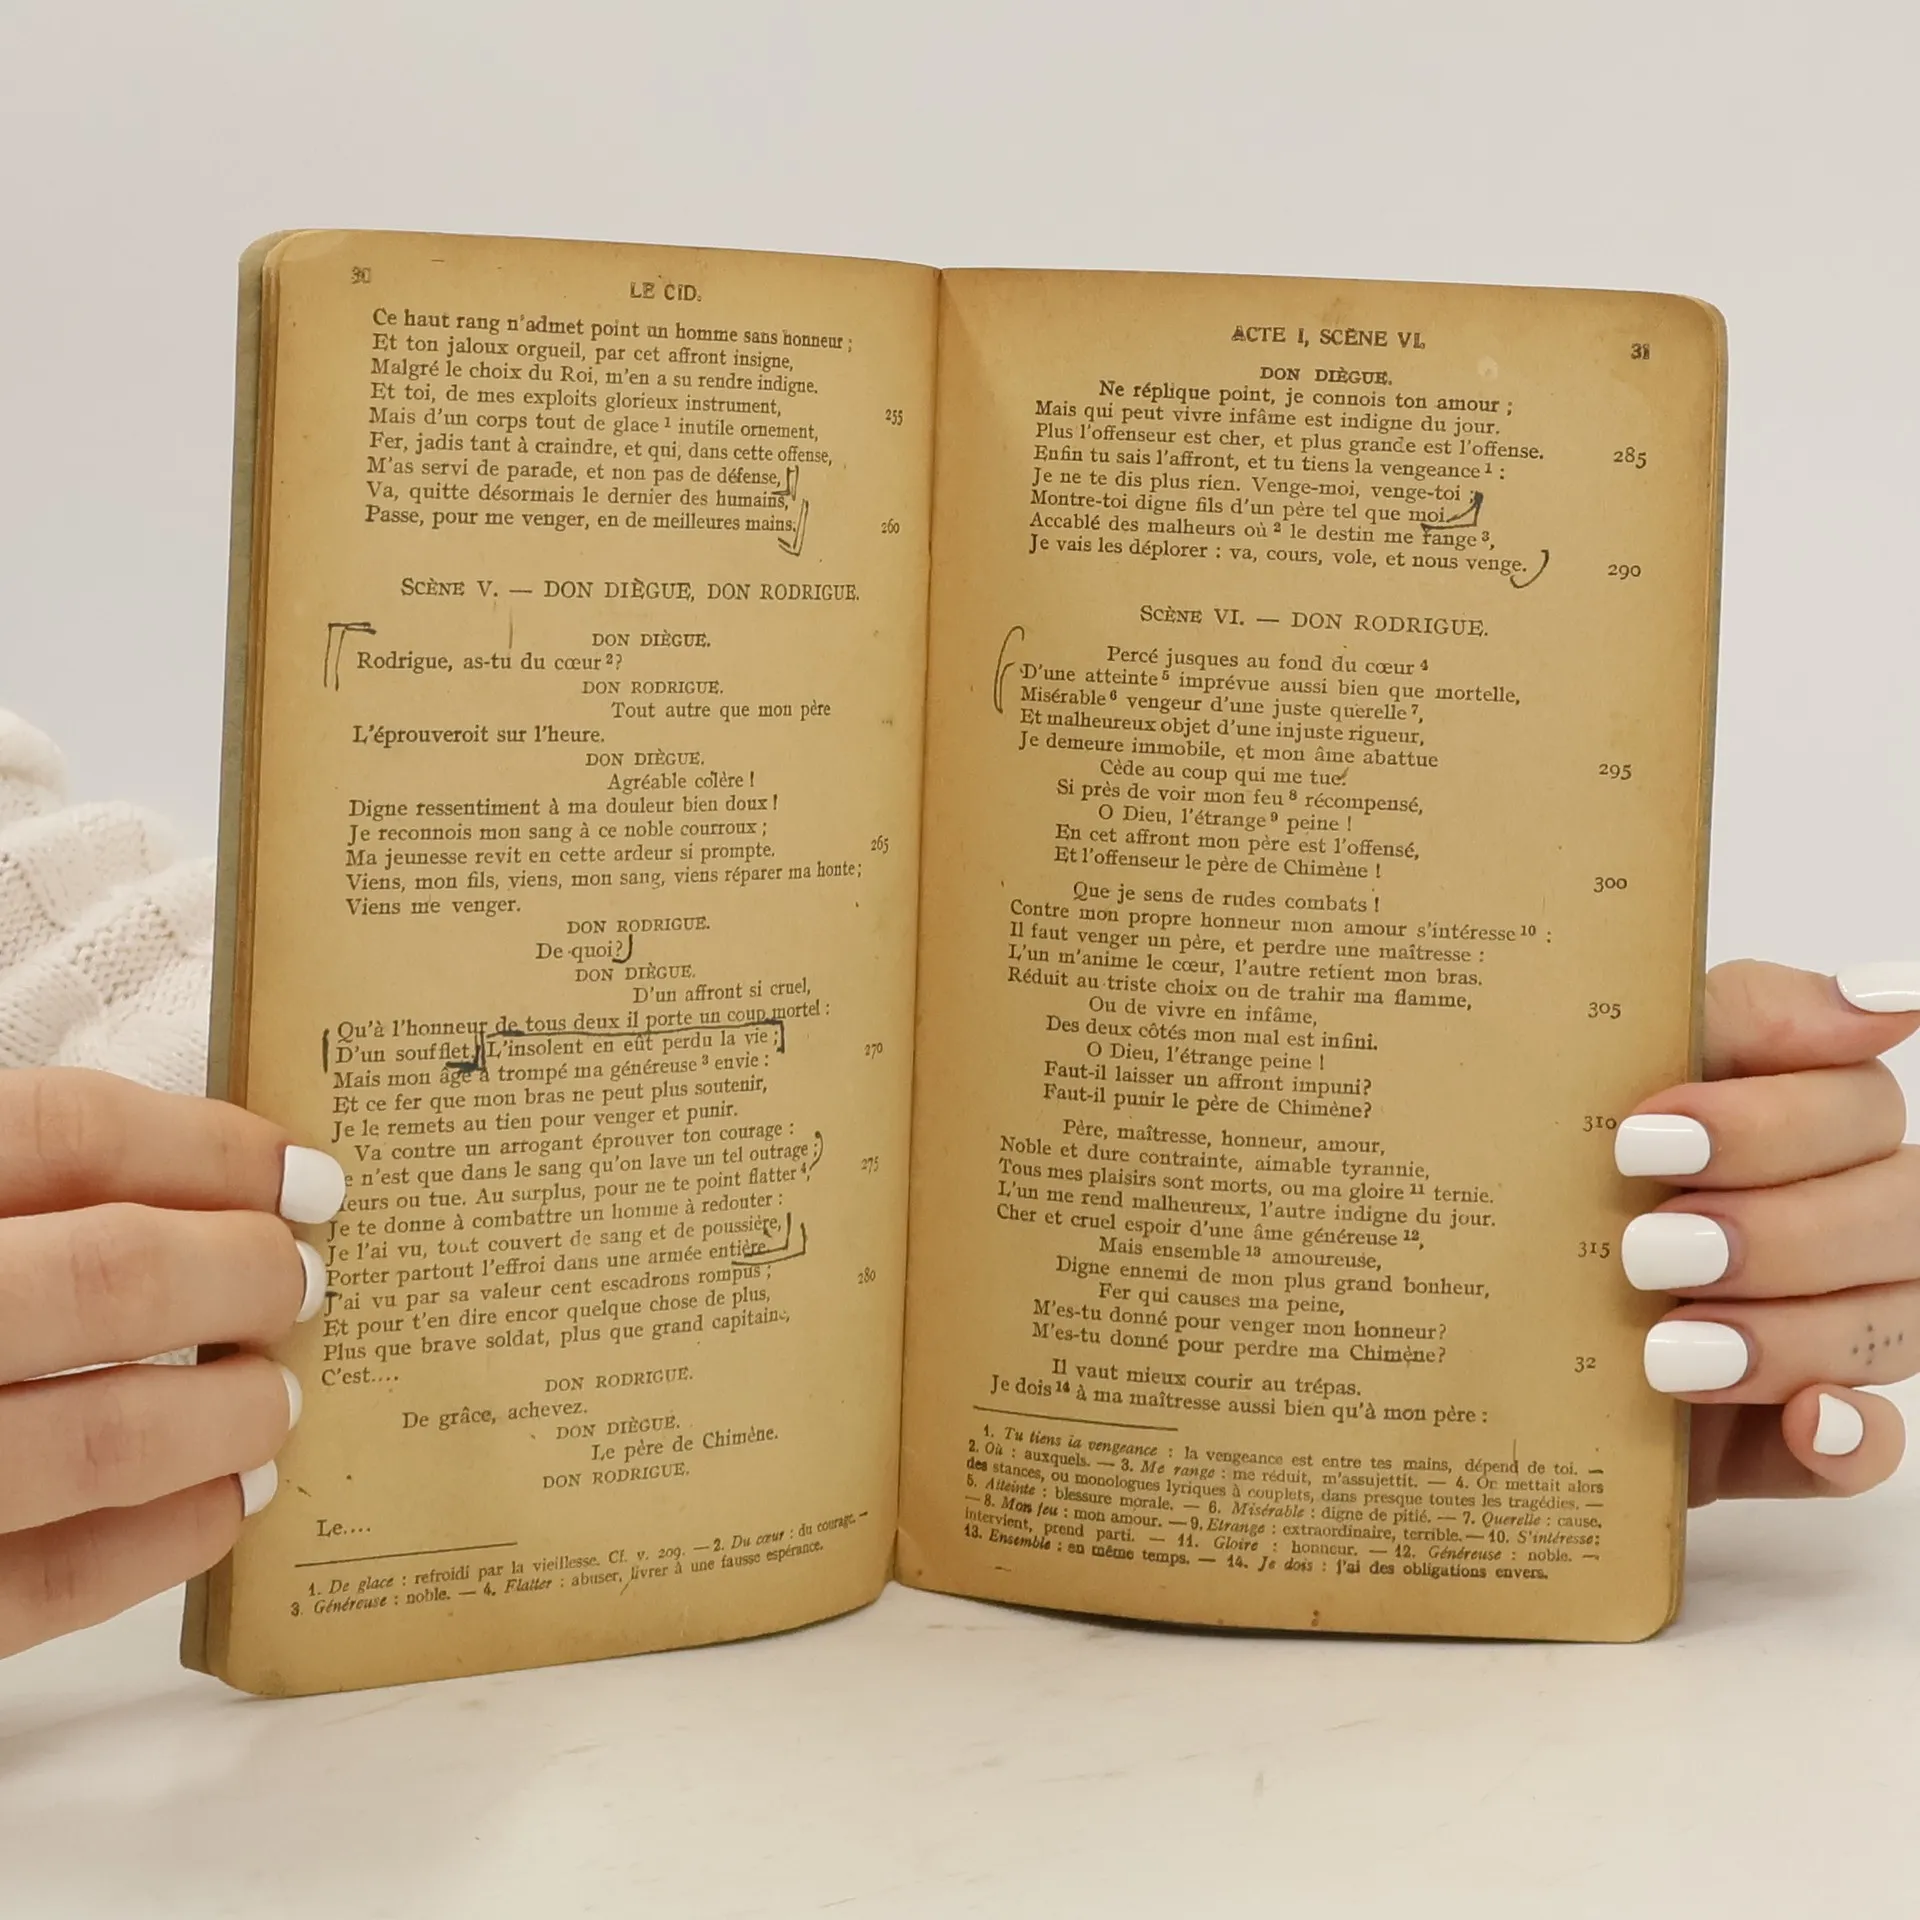 30
LE CID.
Ce haut rang n'admet point un homme sans honneur ;
Et ton jaloux orgueil, par cet affront insigne,
Malgré le choix du Roi, m'en a su rendre indigne.
Et toi, de mes exploits glorieux instrument,
Mais d'un corps tout de glace ¹ inutile ornement, 255
Fer, jadis tant à craindre, et qui, dans cette offense,
M'as servi de parade, et non pas de défense,
Va, quitte désormais le dernier des humains,
Passe, pour me venger, en de meilleures mains. 260
SCÈNE V. — DON DIÈGUE, DON RODRIGUE.
DON DIÈGUE.
Rodrigue, as-tu du cœur ²?
DON RODRIGUE.
Tout autre que mon père
L'éprouveroit sur l'heure.
DON DIÈGUE.
Agréable colère !
Digne ressentiment à ma douleur bien doux !
Je reconnois mon sang à ce noble courroux ;
Ma jeunesse revit en cette ardeur si prompte. 265
Viens, mon fils, viens, mon sang, viens réparer ma honte ;
Viens me venger.
DON RODRIGUE.
De quoi?
DON DIÈGUE.
D'un affront si cruel,
Qu'à l'honneur de tous deux il porte un coup mortel :
D'un soufflet. L'insolent en eût perdu la vie ;
Mais mon âge a trompé ma généreuse ³ envie : 270
Et ce fer que mon bras ne peut plus soutenir,
Je le remets au tien pour venger et punir.
Va contre un arrogant éprouver ton courage :
e n'est que dans le sang qu'on lave un tel outrage ;
eurs ou tue. Au surplus, pour ne te point flatter ⁴, 275
Je te donne à combattre un homme à redouter :
Je l'ai vu, tout couvert de sang et de poussière,
Porter partout l'effroi dans une armée entière.
J'ai vu par sa valeur cent escadrons rompus ;
Et pour t'en dire encor quelque chose de plus, 280
Plus que brave soldat, plus que grand capitaine,
C'est....
DON RODRIGUE.
De grâce, achevez.
DON DIÈGUE.
Le père de Chimène.
DON RODRIGUE.
Le....
1. De glace : refroidi par la vieillesse. Cf. v. 209. — 2. Du cœur : du courage. —
3. Généreuse : noble. — 4. Flatter : abuser, livrer à une fausse espérance.
ACTE I, SCÈNE VI.
31
DON DIÈGUE.
Ne réplique point, je connois ton amour ;
Mais qui peut vivre infâme est indigne du jour.
Plus l'offenseur est cher, et plus grande est l'offense. 285
Enfin tu sais l'affront, et tu tiens la vengeance ¹ :
Je ne te dis plus rien. Venge-moi, venge-toi ;
Montre-toi digne fils d'un père tel que moi.
Accablé des malheurs où ² le destin me range ³,
Je vais les déplorer : va, cours, vole, et nous venge. 290
SCÈNE VI. — DON RODRIGUE.
Percé jusques au fond du cœur ⁴
D'une atteinte ⁵ imprévue aussi bien que mortelle,
Misérable ⁶ vengeur d'une juste querelle ⁷,
Et malheureux objet d'une injuste rigueur,
Je demeure immobile, et mon âme abattue 295
Cède au coup qui me tue.
Si près de voir mon feu ⁸ récompensé,
O Dieu, l'étrange ⁹ peine !
En cet affront mon père est l'offensé,
Et l'offenseur le père de Chimène ! 300
Que je sens de rudes combats !
Contre mon propre honneur mon amour s'intéresse ¹⁰ :
Il faut venger un père, et perdre une maîtresse :
L'un m'anime le cœur, l'autre retient mon bras.
Réduit au triste choix ou de trahir ma flamme, 305
Ou de vivre en infâme,
Des deux côtés mon mal est infini.
O Dieu, l'étrange peine !
Faut-il laisser un affront impuni?
Faut-il punir le père de Chimène? 310
Père, maîtresse, honneur, amour,
Noble et dure contrainte, aimable tyrannie,
Tous mes plaisirs sont morts, ou ma gloire ¹¹ ternie.
L'un me rend malheureux, l'autre indigne du jour.
Cher et cruel espoir d'une âme généreuse ¹², 315
Mais ensemble ¹³ amoureuse,
Digne ennemi de mon plus grand bonheur,
Fer qui causes ma peine,
M'es-tu donné pour venger mon honneur?
M'es-tu donné pour perdre ma Chimène? 32
Il vaut mieux courir au trépas.
Je dois ¹⁴ à ma maîtresse aussi bien qu'à mon père :
1. Tu tiens la vengeance : la vengeance est entre tes mains, dépend de toi. —
2. Où : auxquels. — 3. Me range : me réduit, m'assujettit. — 4. On mettait alors
des stances, ou monologues lyriques à couplets, dans presque toutes les tragédies. —
5. Atteinte : blessure morale. — 6. Misérable : digne de pitié. — 7. Querelle : cause.
— 8. Mon feu : mon amour. — 9. Etrange : extraordinaire, terrible. — 10. S'intéresse :
intervient, prend parti. — 11. Gloire : honneur. — 12. Généreuse : noble. —
13. Ensemble : en même temps. — 14. Je dois : j'ai des obligations envers.